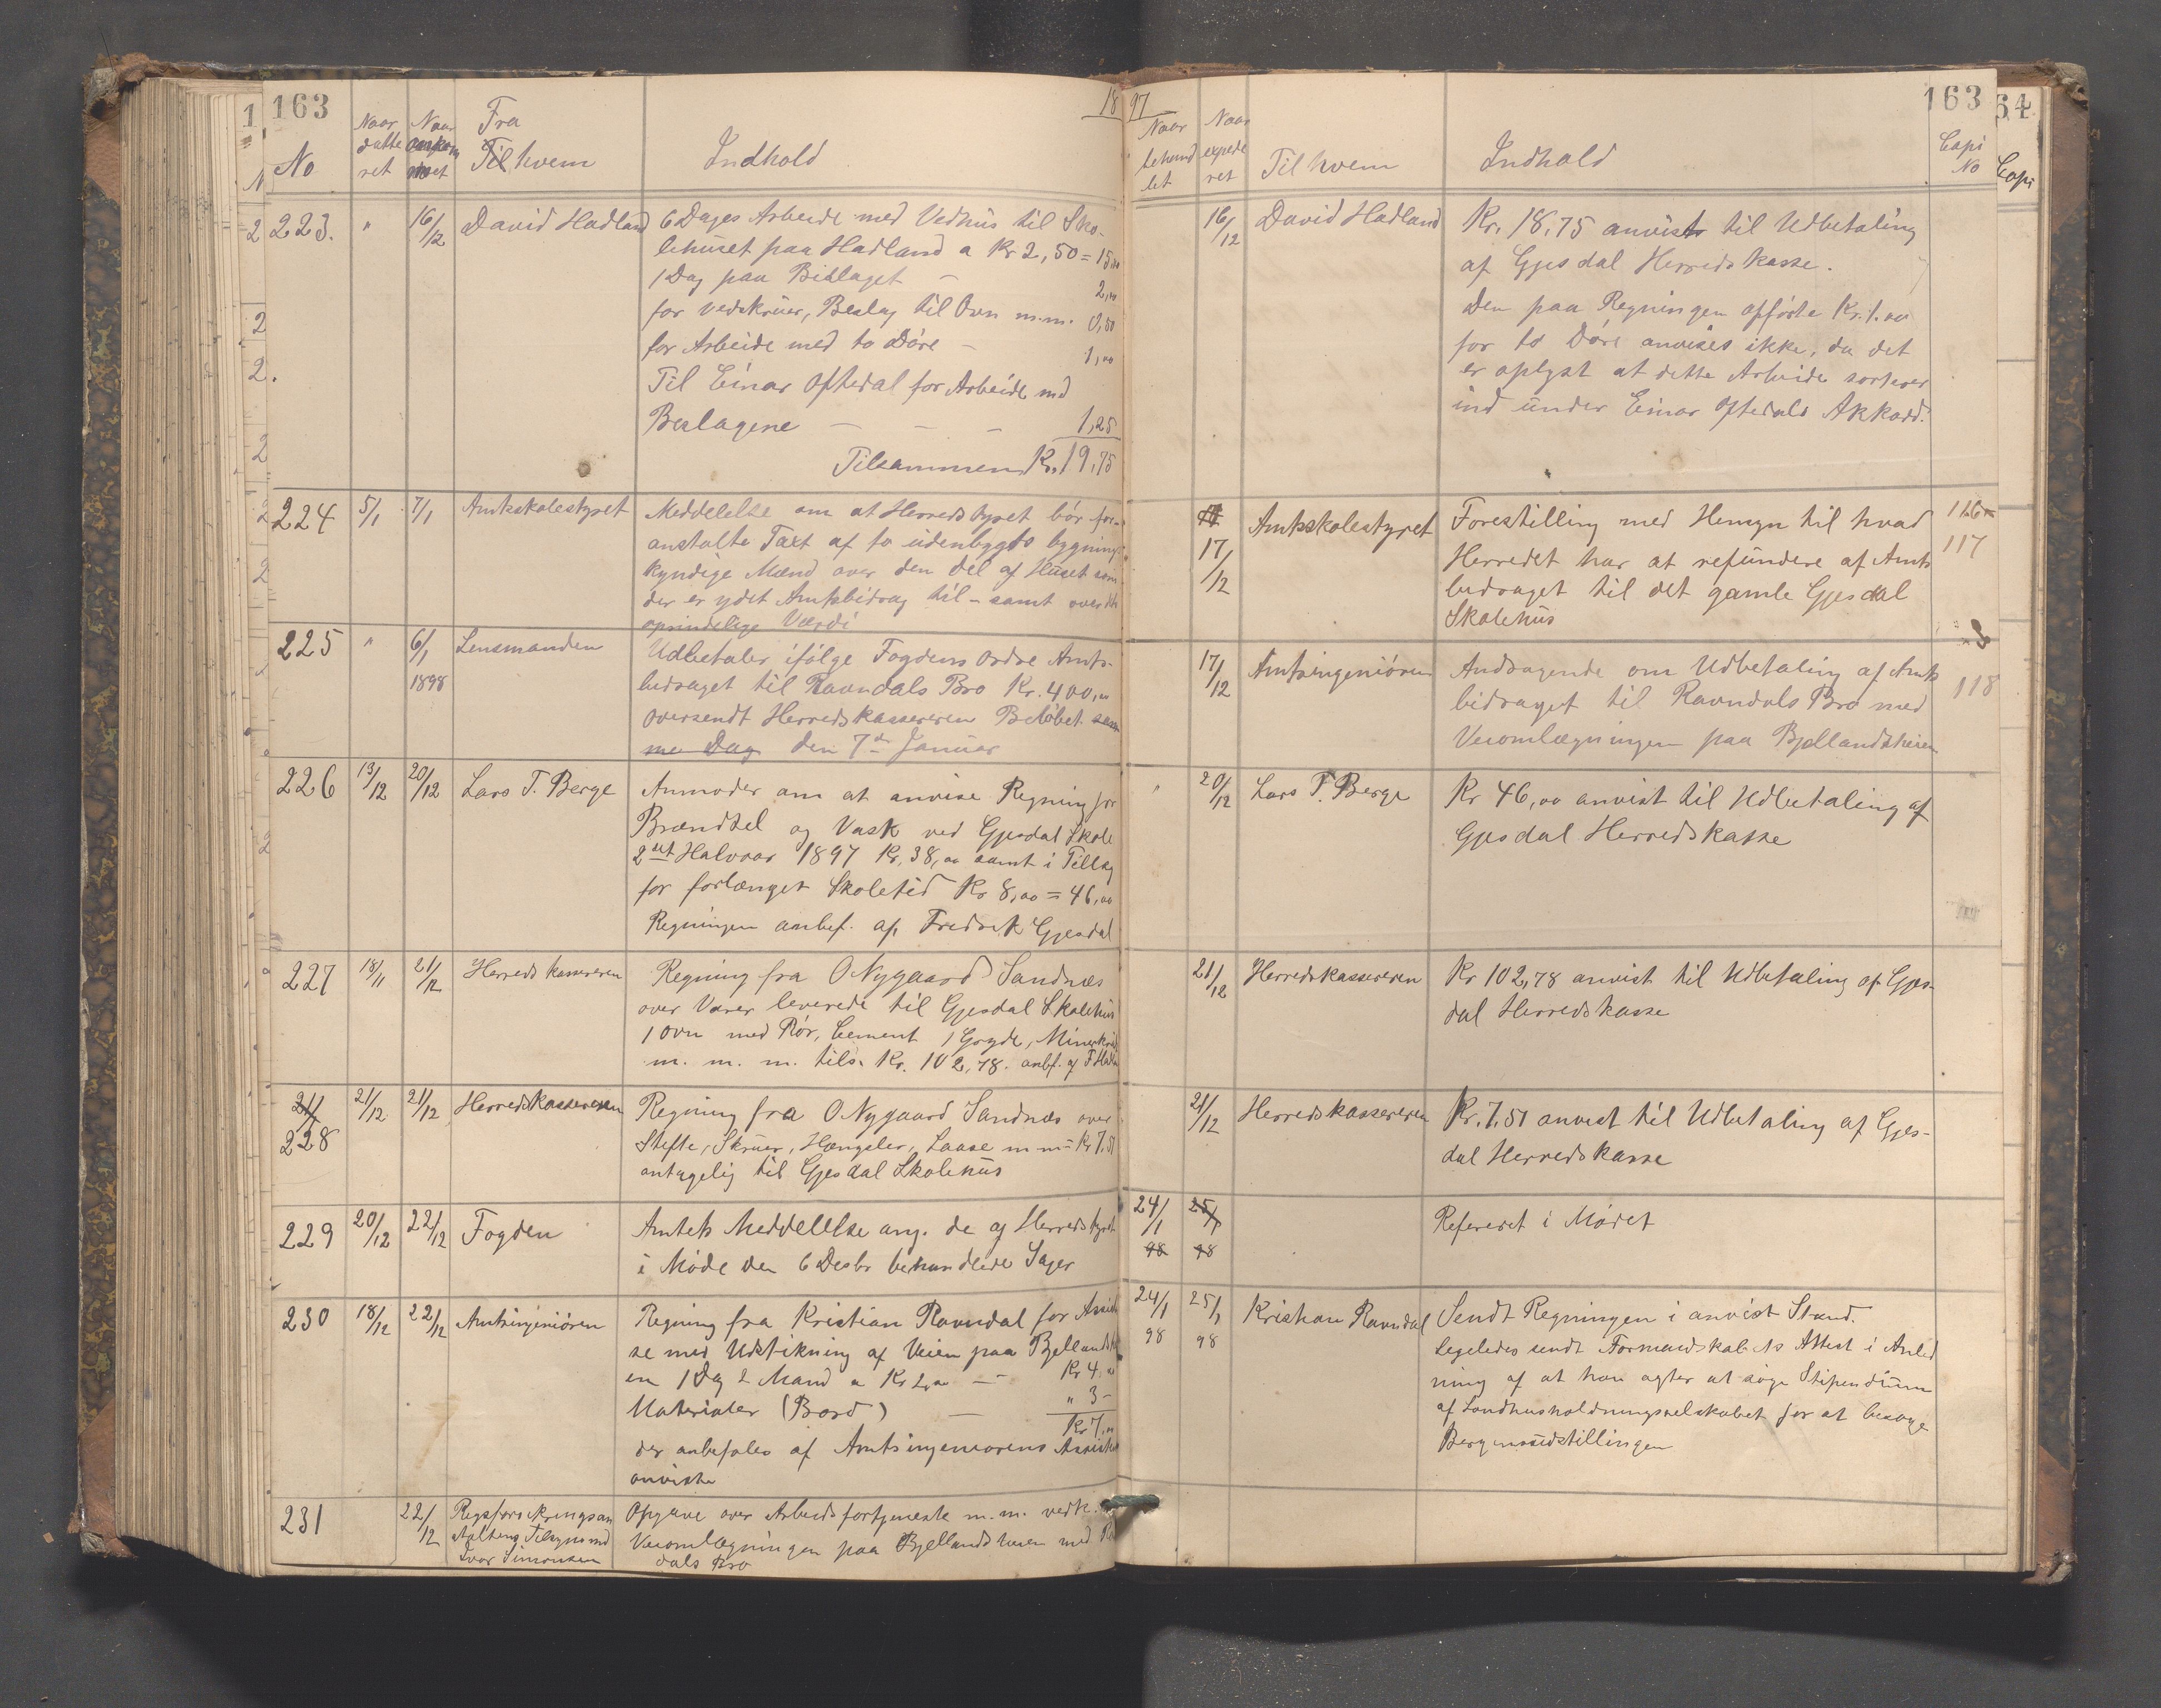 163
No
Naar datteret
Naar ankommet
Fra
Til hvem
Indhold
18
223.
"
16/12
David Hadland
6 Dages Arbeide med Vedhus til Sko-
lehuset paa Hadland a Kr 2,50 = 15,00
1 Dag paa Bislaget — 2,00
for vedskruer, Beslag til Ovn m.m. 0,50
for Arbeide med to Döre — 1,00
Til Einar Oftedal for Arbeide med
Beslagene — — — 1,25
Tilsammen Kr. 19,75
224
5/1
7/1
Amtsskolestyret
Meddelelse om at Herredstyret bör for-
anstalte Taxt af to udenbygds bygnings
kyndige Mænd over den del af Huset som
der er ydet Amtsbidrag til – samt over det
oprindelige Værdi
225
"
6/1
1898
Lensmanden
Udbetaler ifölge Fogdens Ordre Amts-
bidraget til Ravndals Bro Kr. 400,00
oversendt Herredskassereren Belöbet sam
me Dag den 7de Januar
226
13/12
20/12
Lars T. Berge
Anmoder om at anvise Regning for
Brændsel og Vask ved Gjesdal Skole
2det Halvaar 1897 Kr. 38,00 samt i Tillæg
for forlænget Skoletid Kr 8,00 = 46,00
Regningen anbef. af Fredrik Gjesdal
227
18/11
21/12
Herredskassereren
Regning fra O Nygaard Sandnæs
over Varer leverede til Gjesdal Skolehus
1 Ovn med Rör, Cement 1 Gryde,
m. m. m. tils. Kr. 102,78. anbf. af
21/
228
21/12
21/12
Herredskassereren
Regning fra O Nygaard Sandnæs over
Stefte, Skruer, Hængsler, Laase m m = Kr 7,51
antagelig til Gjesdal Skolehus
229
20/12
22/12
Fogden
Amtets Meddelelse ang. de af Herredstyret
i Möde den 6 Desbr behandlede Sager
230
18/12
22/12
Amtsingeniören
Regning fra Kristian Ravndal for Assistan
se med Udstikning af Veien paa Bjellandshei
en 1 Dag 2 Mand a Kr 2,00 — Kr 4,00
Materialer (Bord) — " 3 –
Kr 7,00
der anbefales af Amtsingeniorens Assistent
anviste
231
22/12
Rigsforsikringsan
stalten Tilsynsmd
Ivar Simonsen
Opgave over Arbeidsfortjeneste m.m. vedk.
Veiomlægningen paa Bjellandsheien med Ravn
dals Bro
97
163
Naar behandlet
Naar expederet
Til hvem
Indhold
Copi No
16/12
David Hadland
Kr. 18,75 anvist til Udbetaling
af Gjesdal Herredskasse.
Den paa Regningen opförte Kr. 1.00
for to Döre anvises ikke, da det
er oplyst at dette Arbeide sorterer
ind under Einar Oftedals Akkord.
17/12
Amtsskolestyret
Forestilling med Hensyn til hvad
Herredet har at refundere af Amts
bidraget til det gamle Gjesdal
Skolehus
116
117
17/12
Amtsingeniören
Andragende om Udbetaling af Amts
bidraget til Ravndals Bro med
Veiomlægningen paa Bjellandsheien
118
"
20/12
Lars T. Berge
Kr 46,00 anvist til Udbetaling af
Gjesdal Herredskasse
21/12
Herredskassereren
Kr 102,78 anvist til Udbetaling af Gjes-
dal Herredskasse
21/12
Herredskassereren
Kr. 7,51 anvist til Udbetaling af Gjes-
dal Herredskasse
24/1
98
25/1
98
Refereret i Mödet
24/1
98
25/1
98
Kristian Ravndal
Sendt Regningen i anvist Stand.
Ligeledes sendt Formandskabets Attest i Anled
ning af at han agter at söge Stipendium
af Landhusholdningsselskabet for at besöge
Bergensudstillingen
64
Copi